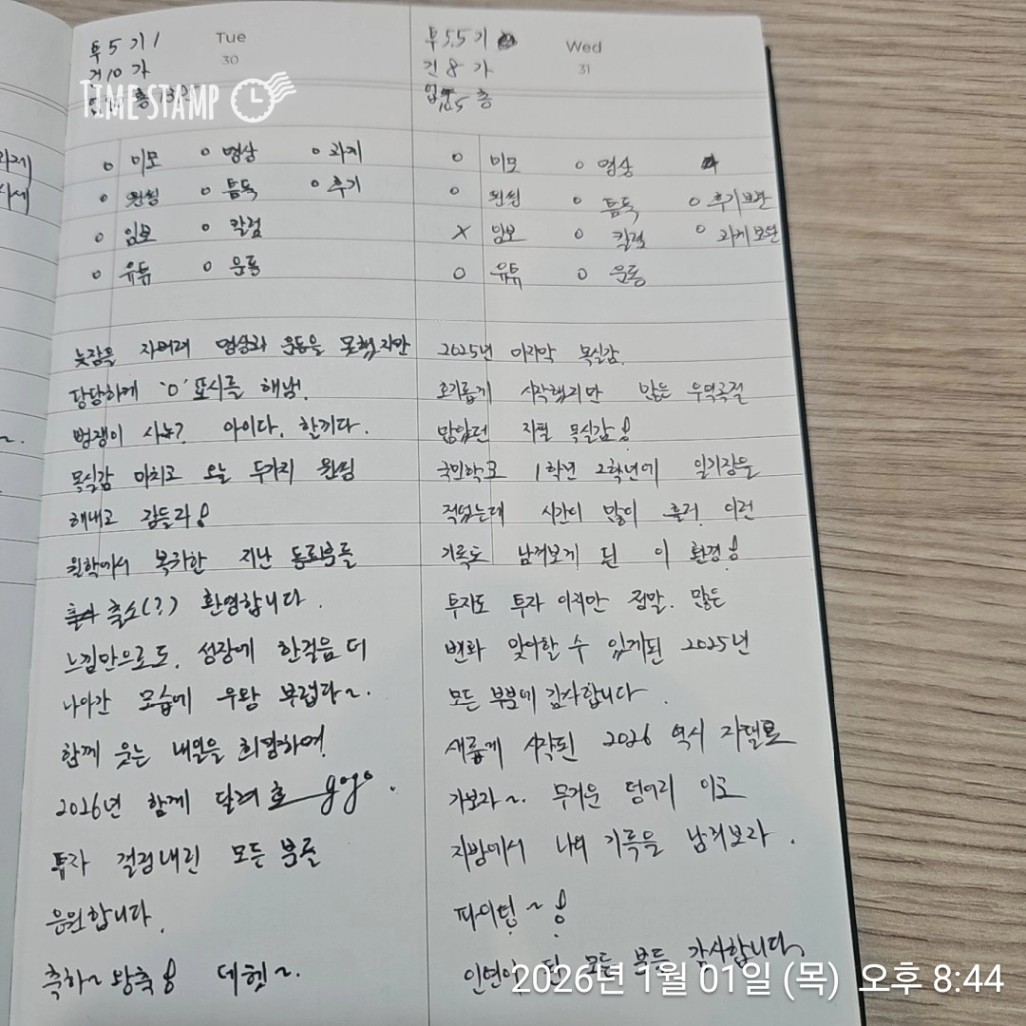 투 5 기 1
Tue
30
건 10 가
TIMESTAMP
o 미모 o 명상 o 과제
o 원씽 o 튜독 o 후기
o 임보 o 칼럼
o 유튜 o 운동
늦잠을 자버려 명상과 운동을 못했지만
당당하게 'O' 표시를 해냄.
범쟁이 사노? 아이다. 할끼다.
목실감 마치고 오늘 두가지 원씽
해내고 잠들라!
원학에서 복귀한 지난 동료분들
출소(?) 환영합니다.
느낌만으로도. 성장에 한걸음 더
나아간 모습에 우왕 부럽다~.
함께 웃는 내일을 희망하며!
2026년 함께 달려호 gogo.
투자 결정내린 모든 분들
응원합니다.
축하~ 왕축! 데헷~.
투 5.5 기
Wed
31
건 8 가
o 미모 o 명상
o 원씽 o 튜독 o 후기보관
x 임보 o 칼럼 o 과제보관
o 유튜 o 운동
2025년 마지막 목실감.
호기롭게 시작했지만 많은 우역곡절
많았던 자필 목실감!
국민학교 1학년 2학년에 일기장을
적었는데 시간이 많이 흘러. 이런
기록도 남겨보게 된 이 환경!
투자도 투자 이지만 정말. 많은
변화 맞이할 수 있게된 2025년
모든 부분에 감사합니다.
새롭게 시작된 2026 역시 자필로
가보자~. 무거운 덩어리 이로
지방에서 나의 기록을 남겨보자.
파이팅~!
인연이 된 모든 분들 감사합니다.
2026년 1월 01일 (목) 오후 8:44